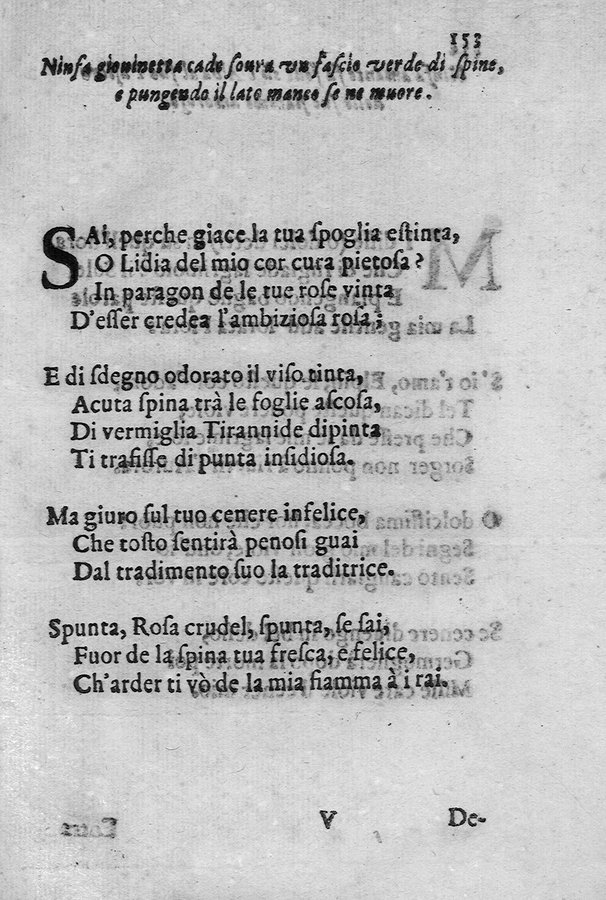 153
Ninfa giouinetta cade soura un fascio verde di spine,
e pungendo il lato manco se ne muore.
SAi, perche giace la tua spoglia estinta,
O Lidia del mio cor cura pietosa?
In paragon de le tue rose vinta
D'esser credea l'ambiziosa rosa;
E di sdegno odorato il viso tinta,
Acuta spina trà le foglie ascosa,
Di vermiglia Tirannide dipinta
Ti trafisse di punta insidiosa.
Ma giuro sul tuo cenere infelice,
Che tosto sentirà penosi guai
Dal tradimento suo la traditrice.
Spunta, Rosa crudel, spunta, se sai,
Fuor de la spina tua fresca, e felice,
Ch'arder ti vò de la mia fiamma à i rai.
V
De-